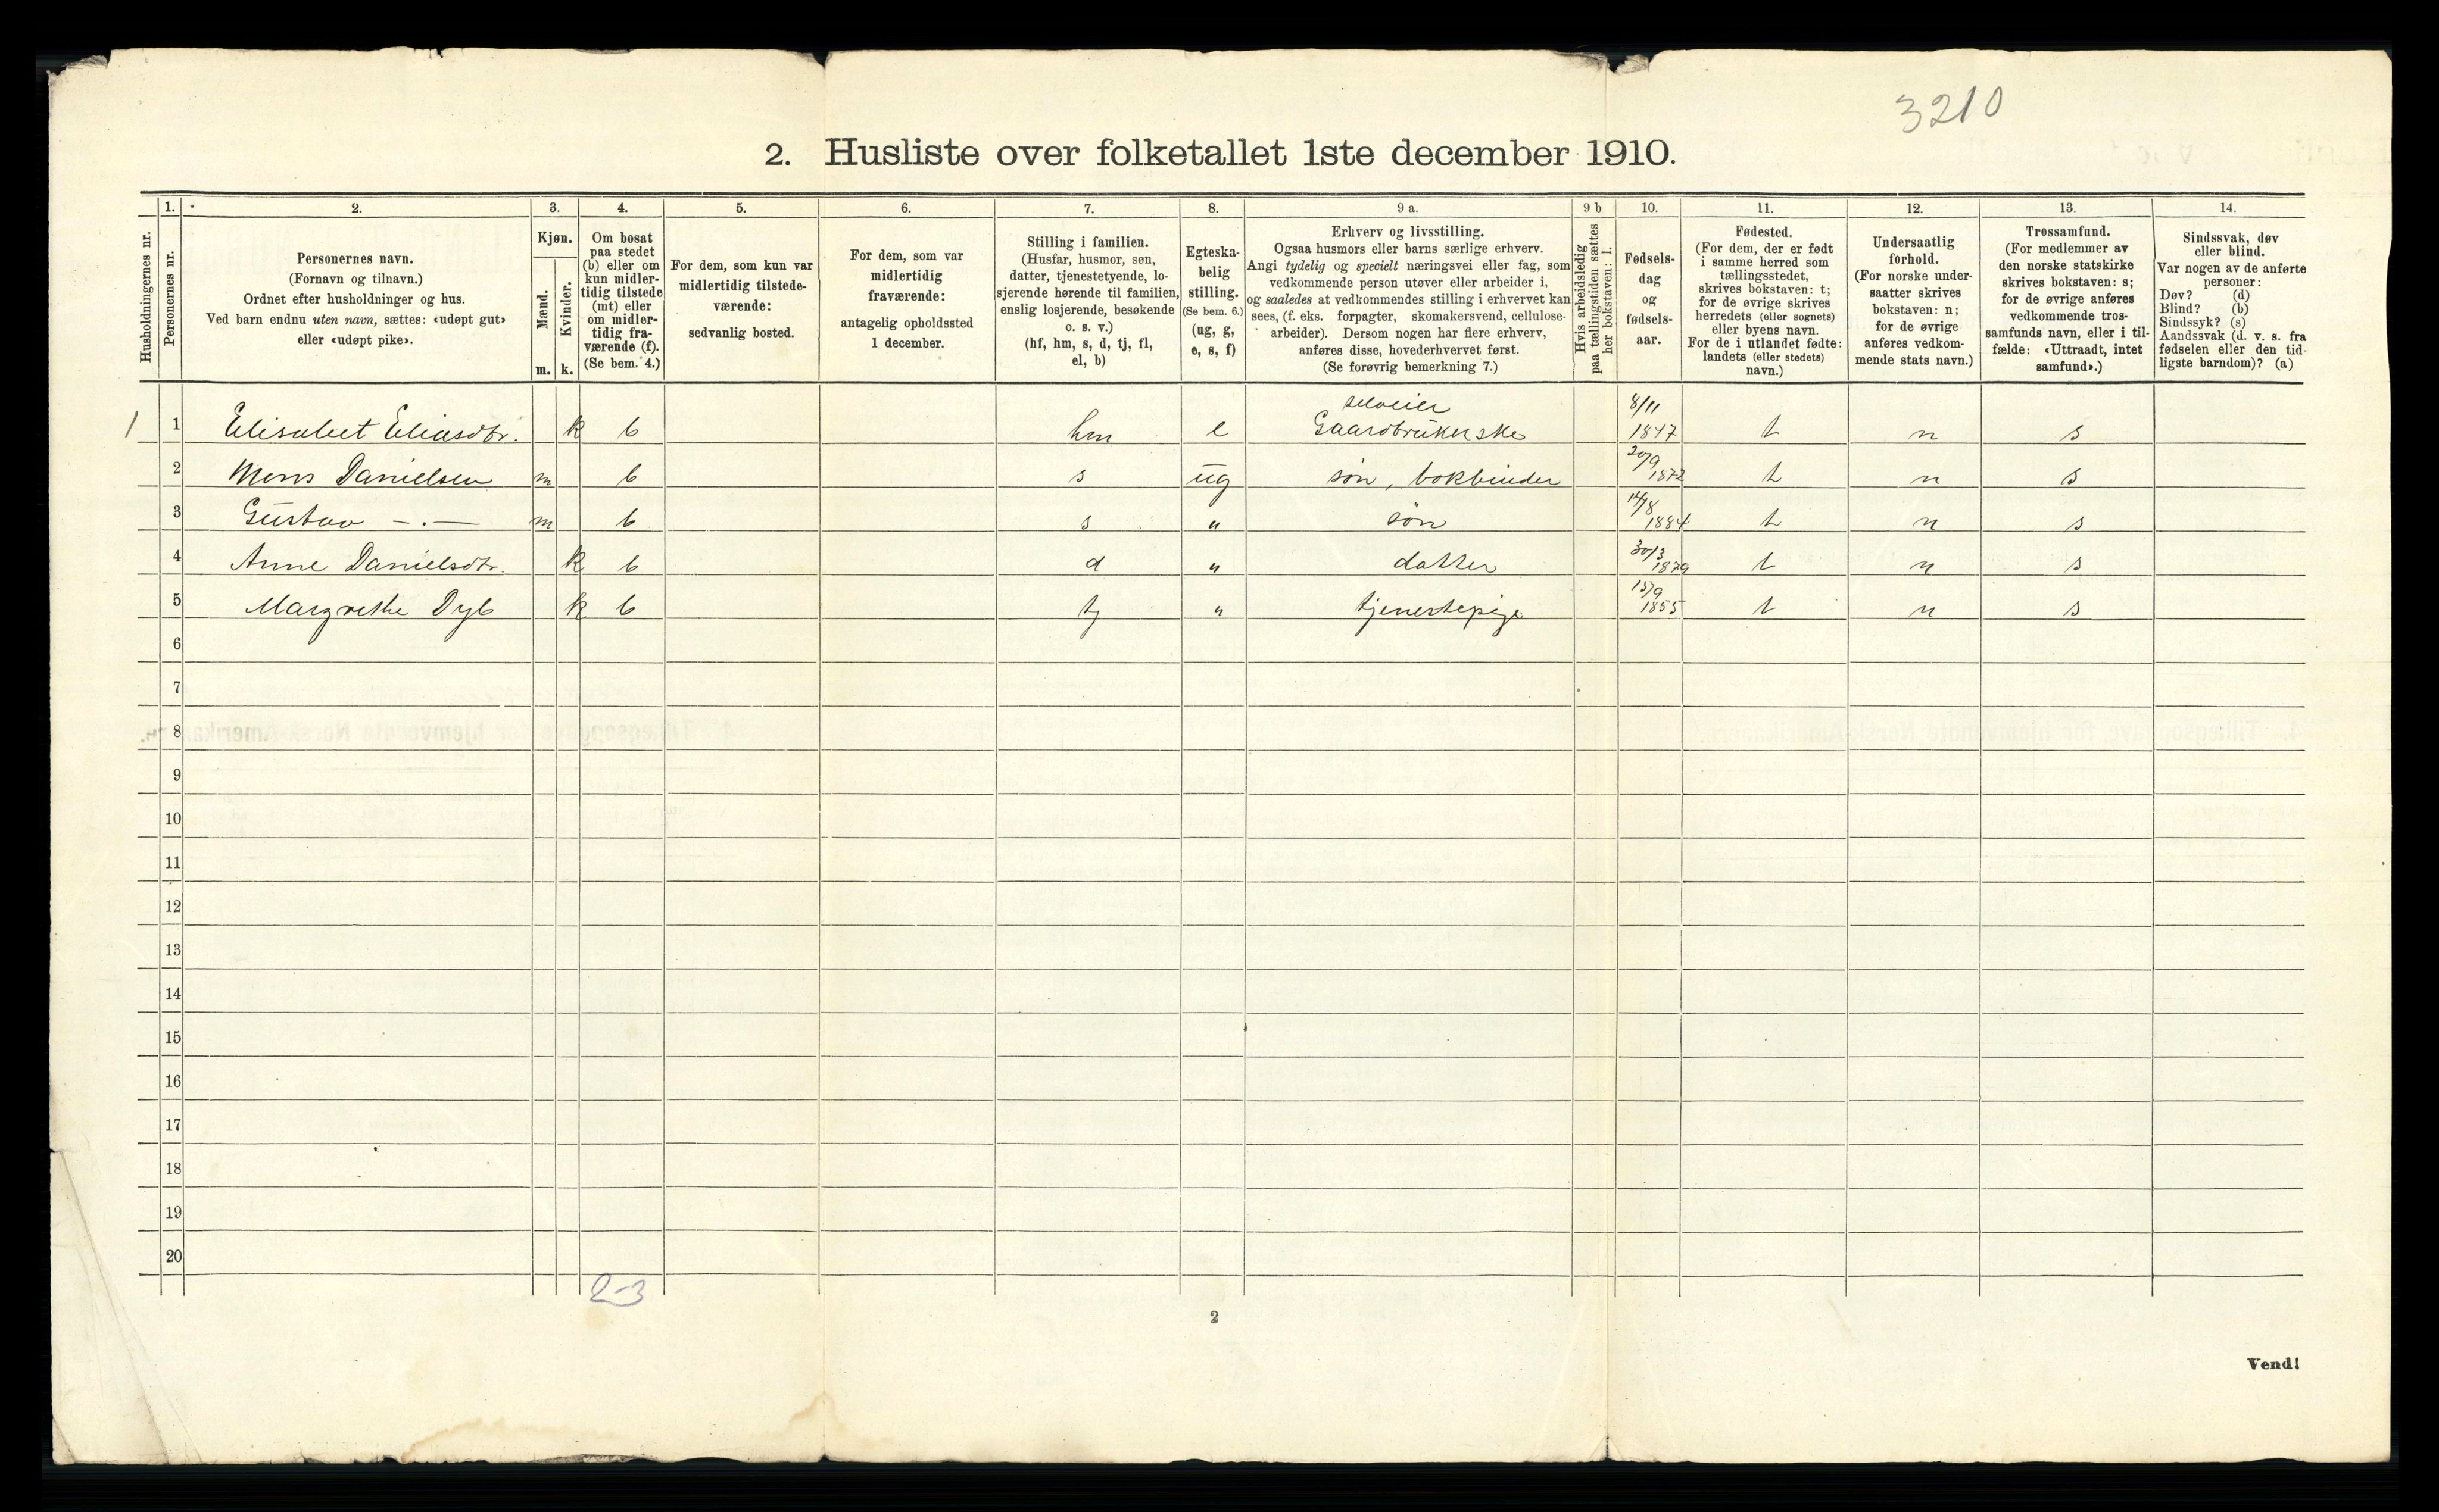 3210
2. Husliste over folketallet 1ste december 1910.
Husholdningernes nr.
1.
Personernes nr.
2.
Personernes navn.
(Fornavn og tilnavn.)
Ordnet efter husholdninger og hus.
Ved barn endnu uten navn, sættes: «udøpt gut»
eller «udøpt pike».
3.
Kjøn.
Mænd.
Kvinder.
m. k.
4.
Om bosat
paa stedet
(b) eller om
kun midler-
tidig tilstede
(mt) eller
om midler-
tidig fra-
værende (f).
(Se bem. 4.)
5.
For dem, som kun var
midlertidig tilstede-
værende:
sedvanlig bosted.
6.
For dem, som var
midlertidig
fraværende:
antagelig opholdssted
1 december.
7.
Stilling i familien.
(Husfar, husmor, søn,
datter, tjenestetyende, lo-
sjerende hørende til familien,
enslig losjerende, besøkende
o. s. v.)
(hf, hm, s, d, tj, fl,
el, b)
8.
Egteska-
belig
stilling.
(Se bem. 6.)
(ug, g,
e, s, f)
9 a.
Erhverv og livsstilling.
Ogsaa husmors eller barns særlige erhverv.
Angi tydelig og specielt næringsvei eller fag, som
vedkommende person utøver eller arbeider i,
og saaledes at vedkommendes stilling i erhvervet kan
sees, (f. eks. forpagter, skomakersvend, cellulose-
arbeider). Dersom nogen har flere erhverv,
anføres disse, hovederhvervet først.
(Se forøvrig bemerkning 7.)
9 b
Hvis arbeidsledig
paa tællingstiden sættes
her bokstaven: l.
10.
Fødsels-
dag
og
fødsels-
aar.
11.
Fødested.
(For dem, der er født
i samme herred som
tællingsstedet,
skrives bokstaven: t;
for de øvrige skrives
herredets (eller sognets)
eller byens navn.
For de i utlandet fødte:
landets (eller stedets)
navn.)
12.
Undersaatlig
forhold.
(For norske under-
saatter skrives
bokstaven: n;
for de øvrige
anføres vedkom-
mende stats navn.)
13.
Trossamfund.
(For medlemmer av
den norske statskirke
skrives bokstaven: s;
for de øvrige anføres
vedkommende tros-
samfunds navn, eller i til-
fælde: «Uttraadt, intet
samfund».)
14.
Sindssvak, døv
eller blind.
Var nogen av de anførte
personer:
Døv? (d)
Blind? (b)
Sindssyk? (s)
Aandssvak (d. v. s. fra
fødselen eller den tid-
ligste barndom)? (a)
selveier 8/11
1 1 Elisabet Eliasdtr. k b hm e Gaardbrukerske 1847 t n s
2 Mons Danielsen m b s ug søn, bokbinder 20/9 1872 t n s
3 Gustav -.- m b s " søn 14/8 1884 t n s
4 Anne Danielsdtr. k b d " datter 30/3 1879 t n s
5 Margrethe Dyb k b tj " tjenestepige 15/9 1855 t n s
6
7
8
9
10
11
12
13
14
15
16
17
18
19
20
2-3
2
Vend!